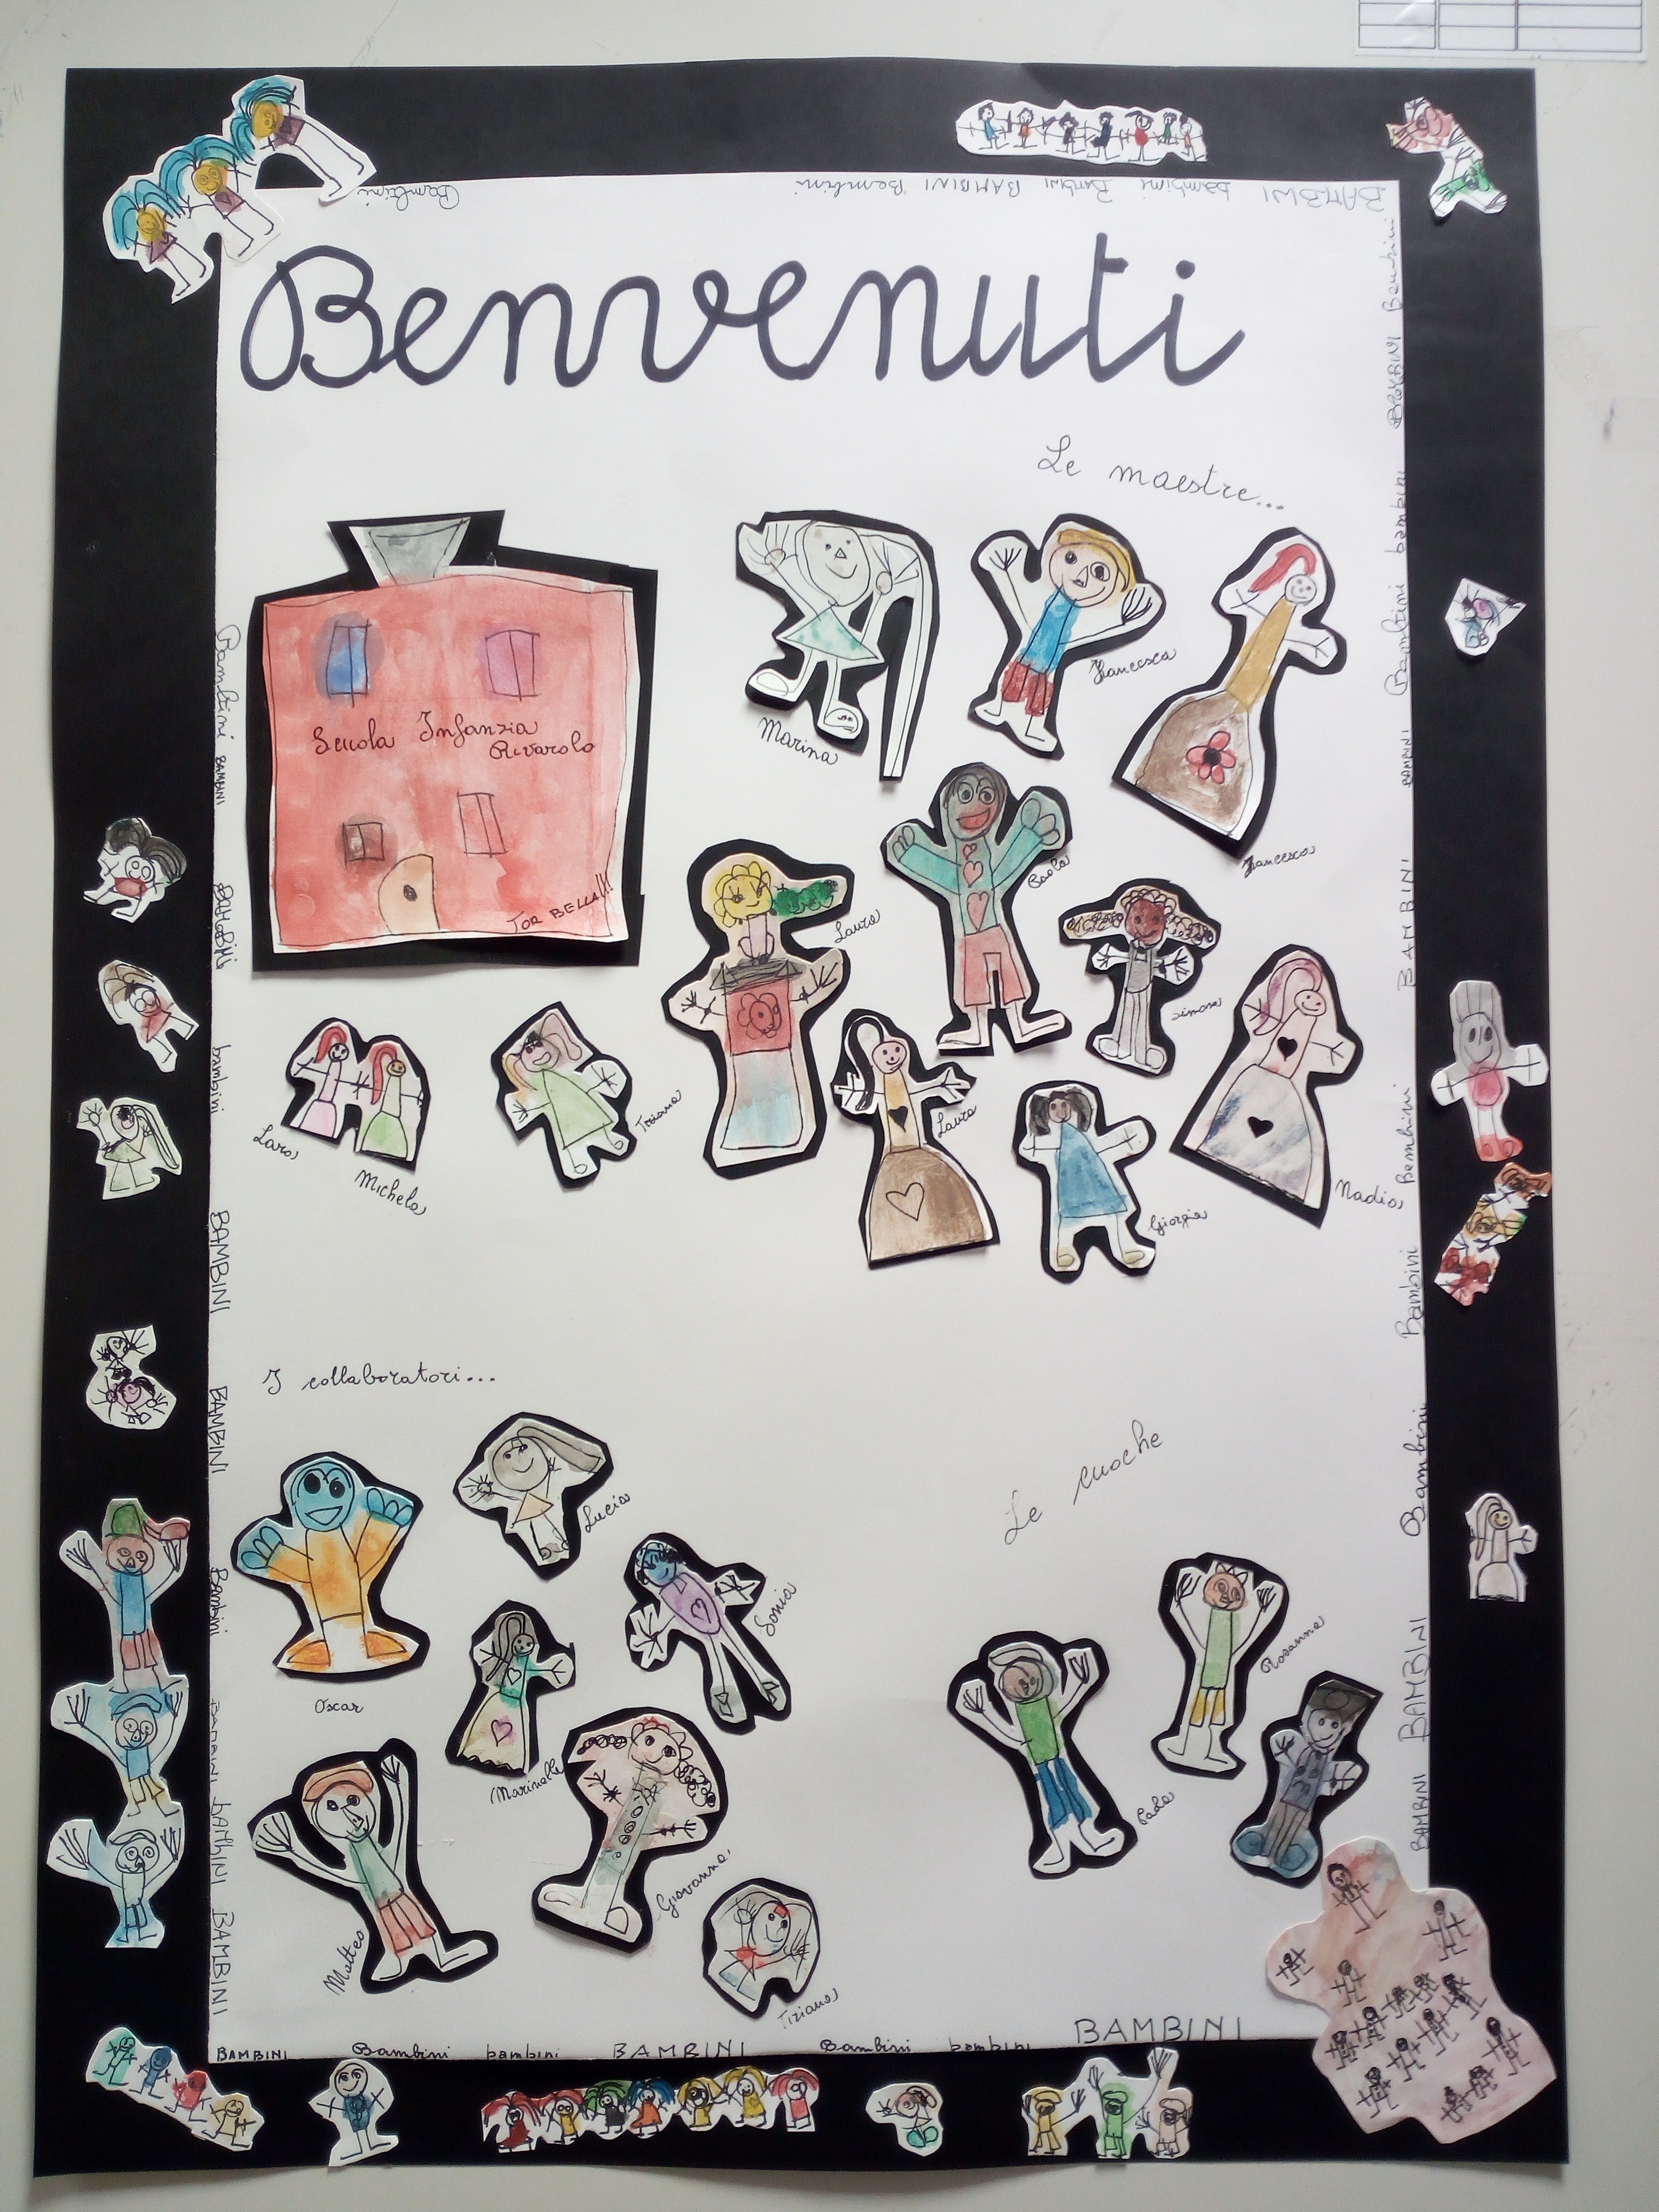 Benvenuti
Le maestre...
Scuola Infanzia
Rivarolo
TOR BELLA!!!
Marina
Francesca
Francesca
Paola
Laura
Simona
Lara
Michela
Tiziana
Laura
Giorgia
Nadia
I collaboratori...
Oscar
Lucia
Sonia
Marinella
Matteo
Giovanna
Tiziana
Le cuoche
Rosanna
Bambini
Bambini BAMBINI Bambini BAMBINI bambini BAMBINI
Bambini
BAMBINI
bambini
BAMBINI
BAMBINI
Bambini
BAMBINI bambini BAMBINI
Bambini
BAMBINI
bambini
Bambini
BAMBINI
BAMBINI
Bambini
Bambini
Bambini
BAMBINI
BAMBINI
BAMBINI Bambini bambini BAMBINI Bambini bambini BAMBINI